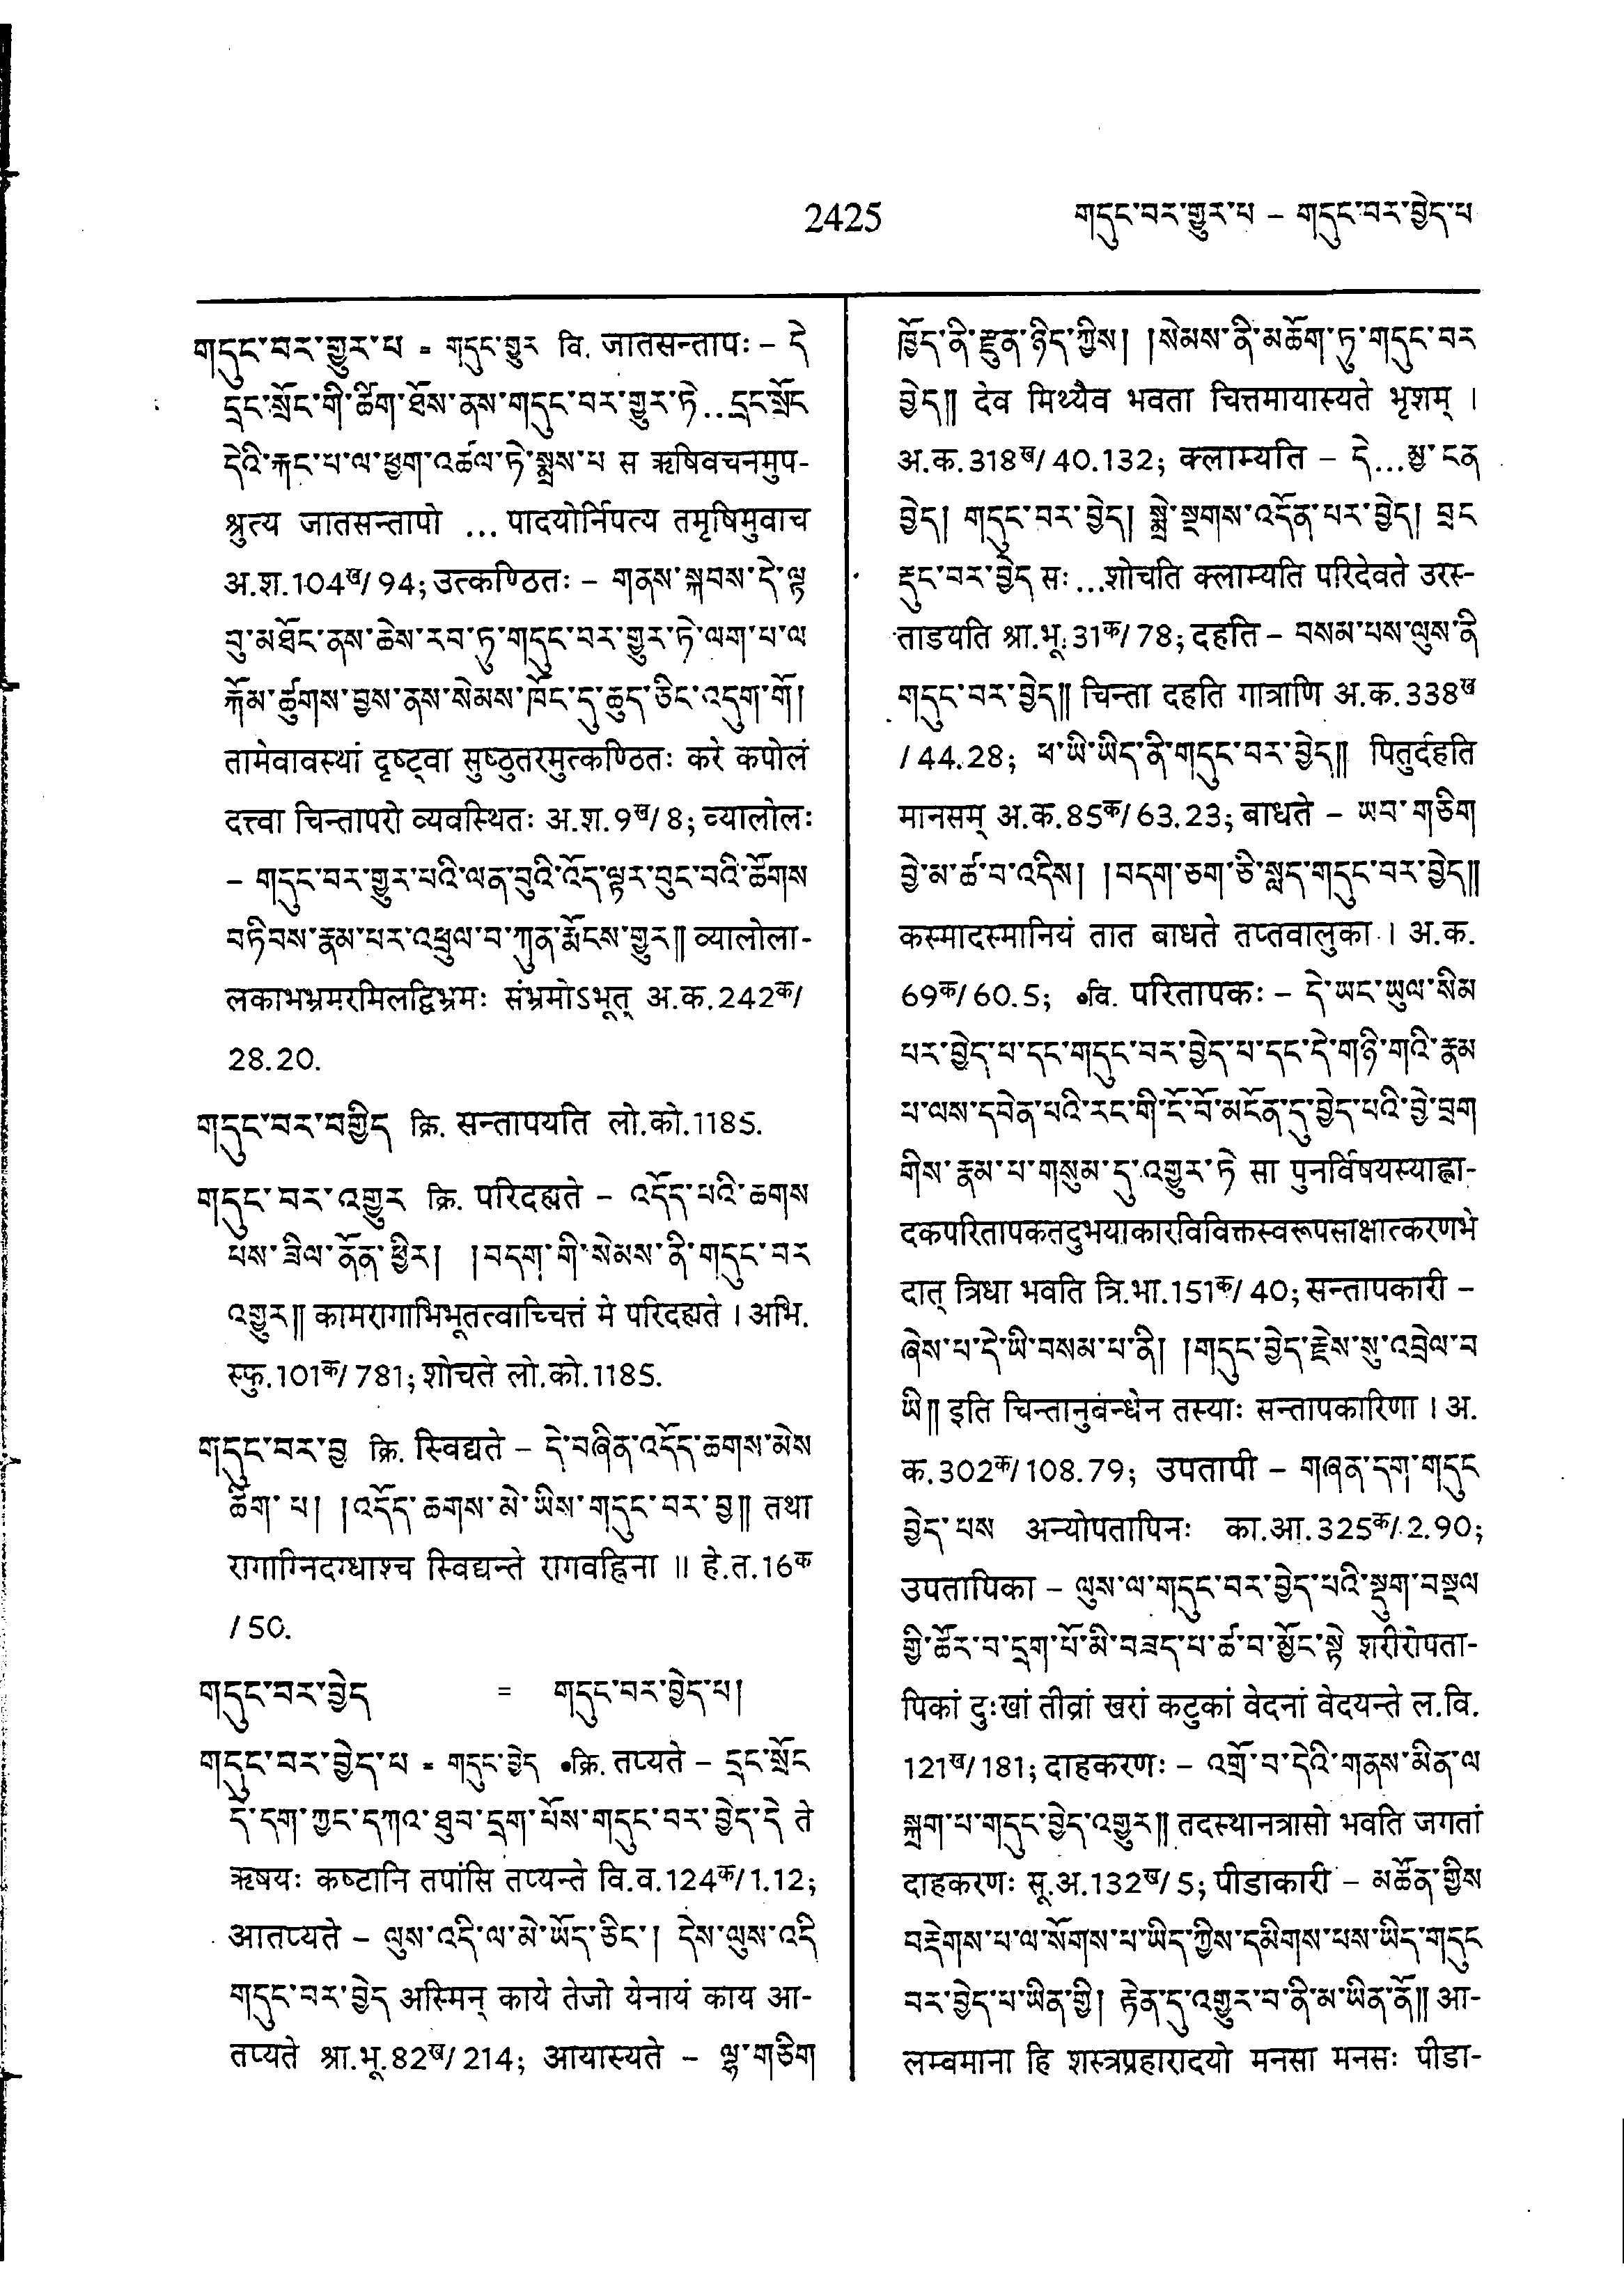 2425
གདུང་བར་གྱུར་པ – གདུང་བར་བྱེད་པ
གདུང་བར་གྱུར་པ = གདུང་གྱུར वि. जातसन्तापः – དེ
དྲང་སྲོང་གི་ཚིག་ཐོས་ནས་གདུང་བར་གྱུར་ཏེ...དྲང་སྲོང
དེའི་རྐང་པ་ལ་ཕྱག་འཚལ་ཏེ་སྨྲས་པ स ऋषिवचनमुप-
श्रुत्य जातसन्तापो ...पादयोर्निपत्य तमृषिमुवाच
अ.श.104ख/94; उत्कण्ठितः – གནས་སྐབས་དེ་ལྟ
བུ་མཐོང་ནས་ཆེས་རབ་ཏུ་གདུང་བར་གྱུར་ཏེ་ལག་པ་ལ
རྐོམ་ཚུགས་བྱས་ནས་སེམས་ཁོང་དུ་ཆུད་ཅིང་འདུག་གོ།
तामेवावस्थां दृष्ट्वा सुष्ठुतरमुत्कण्ठितः करे कपोलं
दत्त्वा चिन्तापरो व्यवस्थितः अ.श.9ख/8; व्यालोलः
– གདུང་བར་གྱུར་པའི་ལན་བུའི་འོད་ལྟར་བུང་བའི་ཚོགས
བཏིབས་རྣམ་པར་འཕྲུལ་བ་ཀུན་རྨོངས་གྱུར༎ व्यालोला-
लकाभभ्रमरमिलद्विभ्रमः संभ्रमोऽभूत् अ.क.242क/
28.20.
གདུང་བར་བགྱིད क्रि. सन्तापयति लो.को.1185.
གདུང་བར་འགྱུར क्रि. परिदह्यते – འདོད་པའི་ཆགས
པས་ཟིལ་ནོན་ཕྱིར། །བདག་གི་སེམས་ནི་གདུང་བར
འགྱུར༎ कामरागाभिभूतत्वाच्चित्तं मे परिदह्यते । अभि.
स्फु.101क/781; शोचते लो.को.1185.
གདུང་བར་བྱ क्रि. स्विद्यते – དེ་བཞིན་འདོད་ཆགས་མེས
ཚིག་པ། །འདོད་ཆགས་མེ་ཡིས་གདུང་བར་བྱ༎ तथा
रागाग्निदग्धाश्च स्विद्यन्ते रागवह्निना ॥ हे.त.16क
/50.
གདུང་བར་བྱེད = གདུང་བར་བྱེད་པ།
གདུང་བར་བྱེད་པ = གདུང་བྱེད •क्रि. तप्यते – དྲང་སྲོང
དེ་དག་ཀྱང་དཀའ་ཐུབ་དྲག་པོས་གདུང་བར་བྱེད་དེ ते
ऋषयः कष्टानि तपांसि तप्यन्ते वि.व.124क/1.12;
आतप्यते – ལུས་འདི་ལ་མེ་ཡོད་ཅིང་། དེས་ལུས་འདི
གདུང་བར་བྱེད अस्मिन् काये तेजो येनायं काय आ-
तप्यते श्रा.भू.82ख/214; आयास्यते – ལྷ་གཅིག
ཁྱོད་ནི་རྫུན་ཉིད་ཀྱིས། །སེམས་ནི་མཆོག་ཏུ་གདུང་བར
བྱེད༎ देव मिथ्यैव भवता चित्तमायास्यते भृशम् ।
अ.क.318ख/40.132; क्लाम्यति – དེ...མྱ་ངན
བྱེད། གདུང་བར་བྱེད། སྨྲེ་སྔགས་འདོན་པར་བྱེད། བྲང
རྡུང་བར་བྱེད सः ...शोचति क्लाम्यति परिदेवते उरस्-
ताडयति श्रा.भू.31क/78; दहति – བསམ་པས་ལུས་ནི
གདུང་བར་བྱེད༎ चिन्ता दहति गात्राणि अ.क.338ख
/44.28; ཕ་ཡི་ཡིད་ནི་གདུང་བར་བྱེད༎ पितुर्दहति
मानसम् अ.क.85क/63.23; बाधते – ཡབ་གཅིག
བྱེ་མ་ཚ་བ་འདིས། །བདག་ཅག་ཅི་སླད་གདུང་བར་བྱེད༎
कस्मादस्मानियं तात बाधते तप्तवालुका । अ.क.
69क/60.5; •वि. परितापकः – དེ་ཡང་ཡུལ་སིམ
པར་བྱེད་པ་དང་གདུང་བར་བྱེད་པ་དང་དེ་གཉི་གའི་རྣམ
པ་ལས་དབེན་པའི་རང་གི་ངོ་བོ་མངོན་དུ་བྱེད་པའི་བྱེ་བྲག
གིས་རྣམ་པ་གསུམ་དུ་འགྱུར་ཏེ सा पुनर्विषयस्याह्ला-
दकपरितापकतदुभयाकारविविक्तस्वरूपसाक्षात्करणभे
दात् त्रिधा भवति त्रि.भा.151क/40; सन्तापकारी –
ཞེས་པ་དེ་ཡི་བསམ་པ་ནི། །གདུང་བྱེད་རྗེས་སུ་འབྲེལ་བ
ཡི༎ इति चिन्तानुबन्धेन तस्याः सन्तापकारिणा । अ.
क.302क/108.79; उपतापी – གཞན་དག་གདུང
བྱེད་པས अन्योपतापिनः का.आ.325क/2.90;
उपतापिका – ལུས་ལ་གདུང་བར་བྱེད་པའི་སྡུག་བསྔལ
གྱི་ཚོར་བ་དྲག་པོ་མི་བཟད་པ་ཚ་བ་མྱོང་སྟེ शरीरोपता-
पिकां दुःखां तीव्रां खरां कटुकां वेदनां वेदयन्ते ल.वि.
121ख/181; दाहकरणः – འགྲོ་བ་དེའི་གནས་མིན་ལ
སྐྲག་པ་གདུང་བྱེད་འགྱུར༎ तदस्थानत्रासो भवति जगतां
दाहकरणः सू.अ.132ख/5; पीडाकारी – མཚོན་གྱིས
བརྡེགས་པ་ལ་སོགས་པ་ཡིད་ཀྱིས་དམིགས་པས་ཡིད་གདུང
བར་བྱེད་པ་ཡིན་གྱི། རྟེན་དུ་འགྱུར་བ་ནི་མ་ཡིན་ནོ༎ आ-
लम्बमाना हि शस्त्रप्रहारादयो मनसा मनसः पीडा-